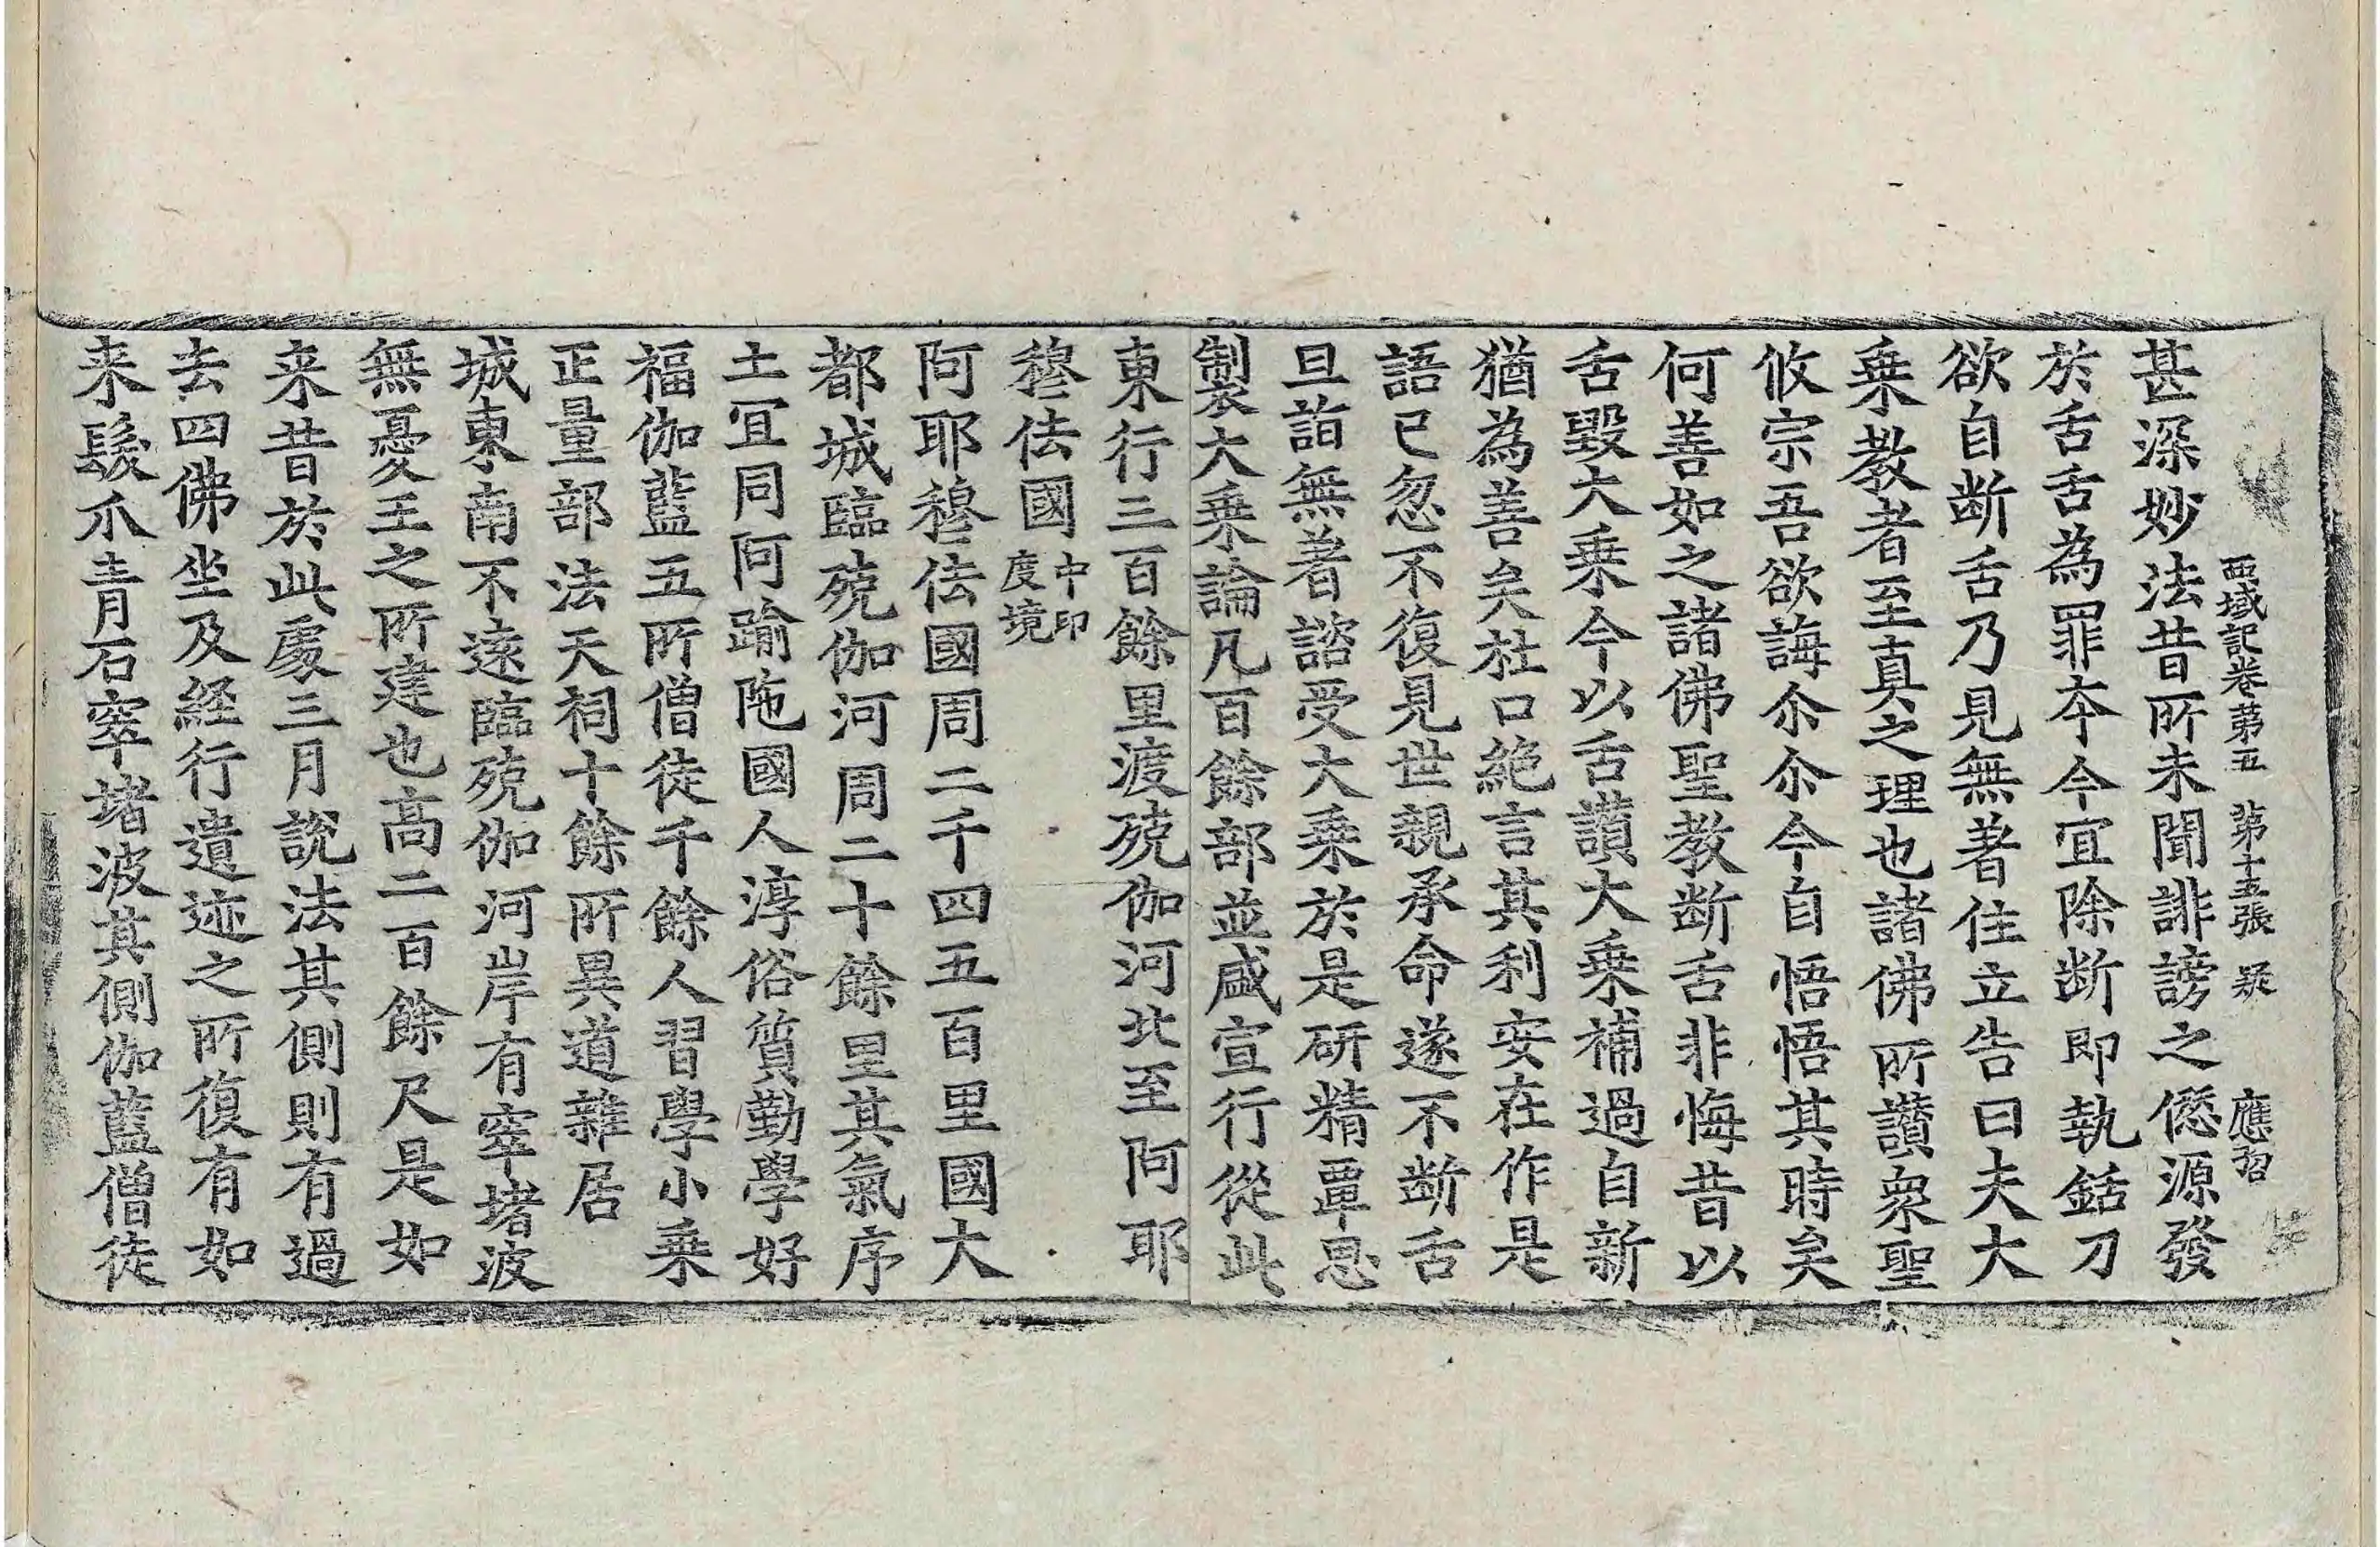 西域記卷苐五　苐十五張　疑　應招
甚深妙法昔所未聞誹謗之㒽源發
於舌舌為罪夲今宜除断即執銛刀
欲自断舌乃見無著住立告曰夫大
乗教者至真之理也諸佛所讃衆聖
攸宗吾欲誨尒尒今自悟悟其時矣
何善如之諸佛聖教断舌非悔昔以
舌毀大乗今以舌讃大乗補過自新
猶為善矣杜口絶言其利安在作是
語已忽不復見世親承命遂不断舌
旦詣無著諮受大乗於是研精覃思
製大乗論凡百餘部並盛宣行從此
東行三百餘里渡殑伽河北至阿耶
穆佉國中印度境
阿耶穆佉國周二千四五百里國大
都城臨殑伽河周二十餘里其氣序
土冝同阿踰陁國人淳俗質勤學好
福伽藍五所僧徒千餘人習學小乗
正量部法天祠十餘所異道雜居
城東南不逺臨殑伽河岸有窣堵波
無憂王之所建也高二百餘尺是如
来昔於此處三月說法其側則有過
去四佛坐及経行遺迹之所復有如
来髮爪青石窣堵波其側伽藍僧徒